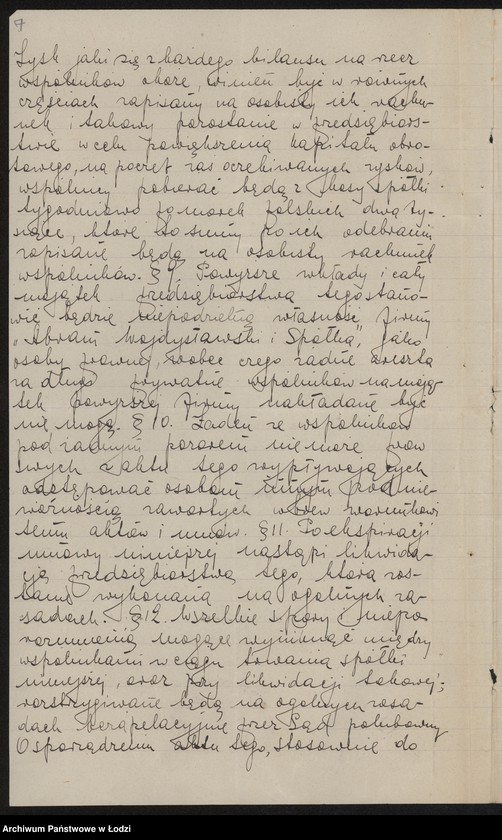 7
Zysk jaki się z każdego bilansu na rzecz
wspólników okaże, winien być w równych
częściach zapisany na osobisty ich rachu-
nek i takowy pozostanie w przedsiębior-
stwie w celu powiększenia kapitału obro-
towego, na poczet zaś oczekiwanych zysków,
wspólnicy pobierać będą z Kasy Spółki
tygodniowo po marek polskich dwa ty-
siące, które to sumy po ich odebraniu
zapisane będą na osobisty rachunek
wspólników. § 9. Powyższe wkłady i cały
majątek przedsiębiorstwa tego stano-
wić będzie niepodzielną własność firmy
"Abram Wojdysławski i Spółka", jako
osoby prawnej, wobec czego żadne areszta
za długi prywatne wspólników na mają-
tek powyższej firmy nakładane być
nie mogą. § 10. Żaden ze wspólników
pod żadnym pozorem nie może praw
swych z aktu tego wypływających
odstępować osobom innym pod nie-
ważnością zawartych wbrew warunkowi
temu aktów i umów. § 11. Po ekspiracji
umowy niniejszej nastąpi likwida-
cja przedsiębiorstwa tego, która zos-
tanie wykonaną na ogólnych za-
sadach. § 12. Wszelkie spory i niepo-
rozumienia mogące wyniknąć między
wspólnikami w ciągu trwania spółki
niniejszej, oraz przy likwidacji takowej,
rozstrzygiwane będą na ogólnych zasa-
dach bezapelacyjnie przez Sąd polubowny
O sporządzeniu aktu tego, stosownie do
Archiwum Państwowe w Łodzi